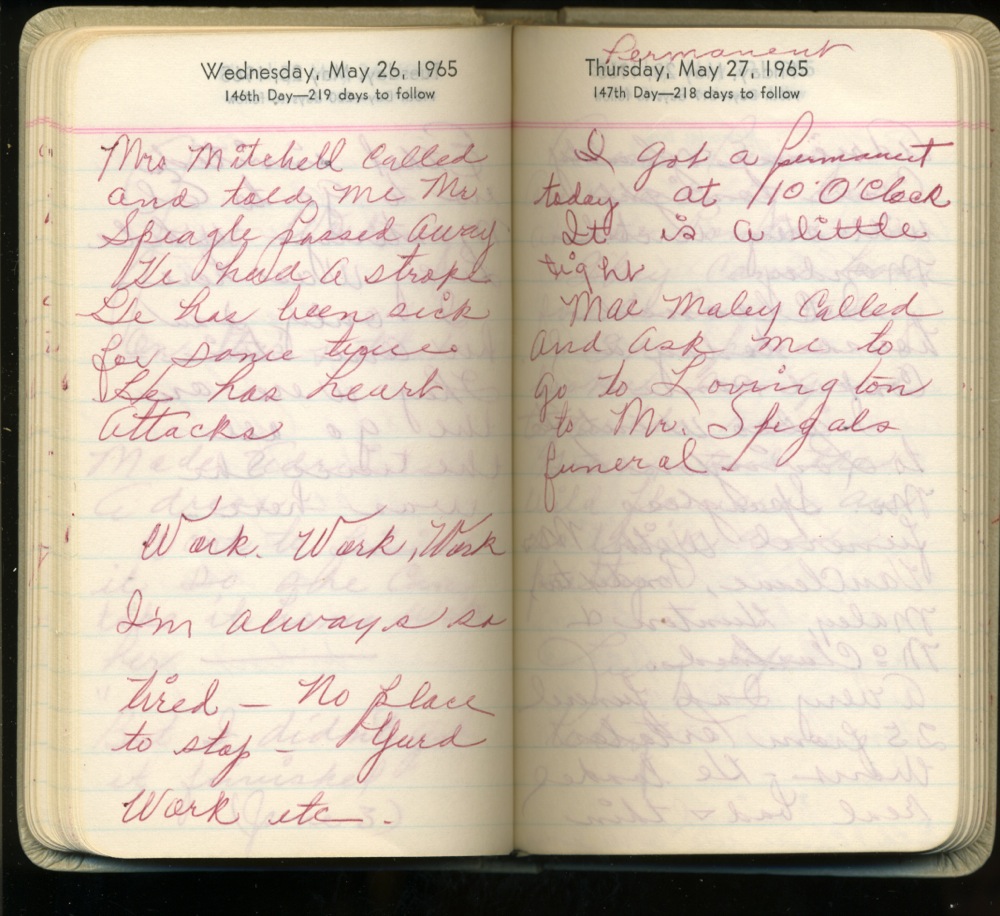 Wednesday, May 26, 1965
146th Day—219 days to follow
Mrs Mitchell Called
and told me Mr
Speagle passed away
He had a strope
He has been sick
for some time
He has heart
attacks
Work. Work, Work
I'm always so
tired — No place
to stop — Yard
Work etc.
Permanent
Thursday, May 27, 1965
147th Day—218 days to follow
I got a permanent
today at 10 O'Clock
It is a little
tight
Mae Maley Called
and ask me to
go to Lovington
to Mr. Spegals
funeral.